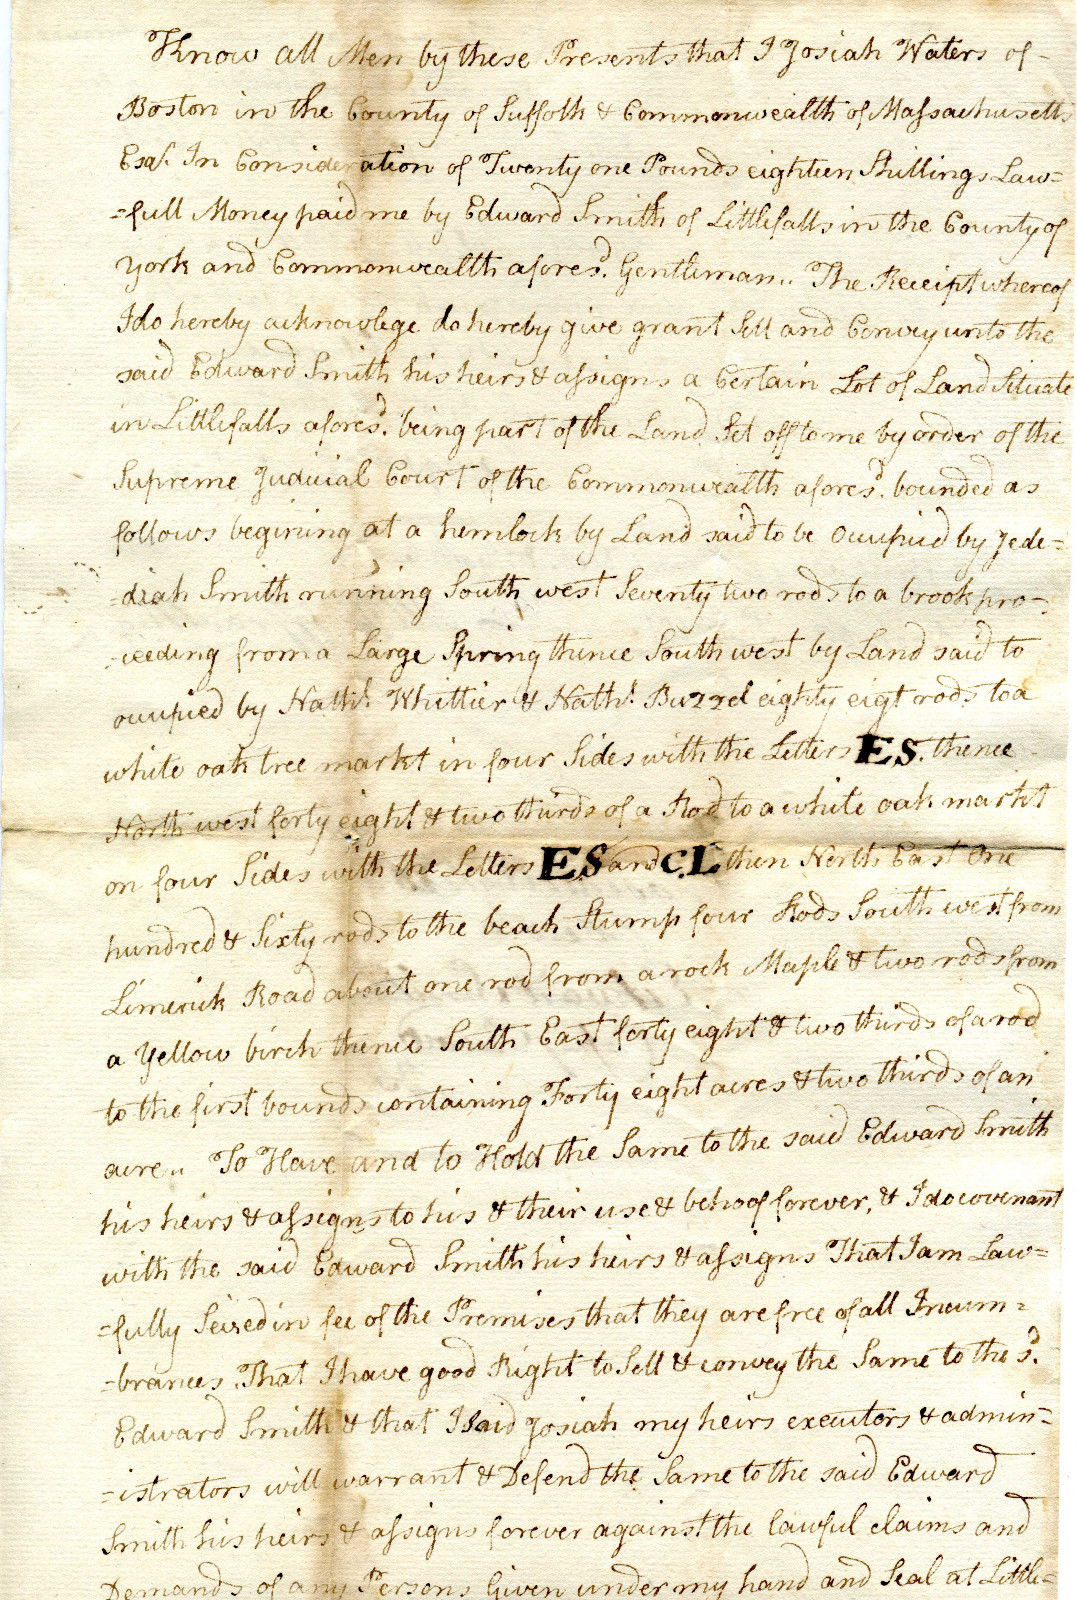 Know all Men by these Presents that I Josiah Waters of-
Boston in the County of Suffolk & Commonwealth of Massachusetts
Esqr. In Consideration of Twenty one Pounds eighteen Shillings Law=
=full Money paid me by Edward Smith of Littlefalls in the County of
York and Commonwealth afores.d Gentleman.. The Receipt whereof
I do hereby acknowlege do hereby give grant Sell and Convey unto the
said Edward Smith his heirs & assigns a Certain Lot of Land Situate
in Littlefalls afores.d being part of the Land Set off to me by order of the
Supreme Judicial Court of the Commonwealth afores.d bounded as
follows begining at a hemlock by Land said to be Occupied by Jede=
=diah Smith running South west Seventy two rods to a brook pro-
-ceeding from a Large Spring thence South west by Land said to
occupied by Nath.l Whittier & Nath.l Buzzel eighty eigt rods to a
white oak tree markt in four Sides with the Letters ES. thence
North west forty eight & two thirds of a Rod to a white oak markt
on four Sides with the Letters E.S and C.L then North East One
hundred & Sixty rods to the beach Stump four Rods South west from
Limerick Road about one rod from a rock Maple & two rods from
a Yellow birch thence South East forty eight & two thirds of a rod
to the first bounds containing Forty eight acres & two thirds of an
acre.. To Have and to Hold the Same to the said Edward Smith
his heirs & assigns to his & their use & behoof forever, & I do covenant
with the said Edward Smith his heirs & assigns That I am Law=
=fully Seized in fee of the Premises that they are free of all Incum=
=brances That I have good Right to Sell & convey the Same to the s.d
Edward Smith & that I Said Josiah my heirs executors & admin=
=istrators will warrant & Defend the Same to the said Edward
Smith his heirs & assigns forever against the lawful claims and
Demands of any Persons Given under my hand and Seal at Little=